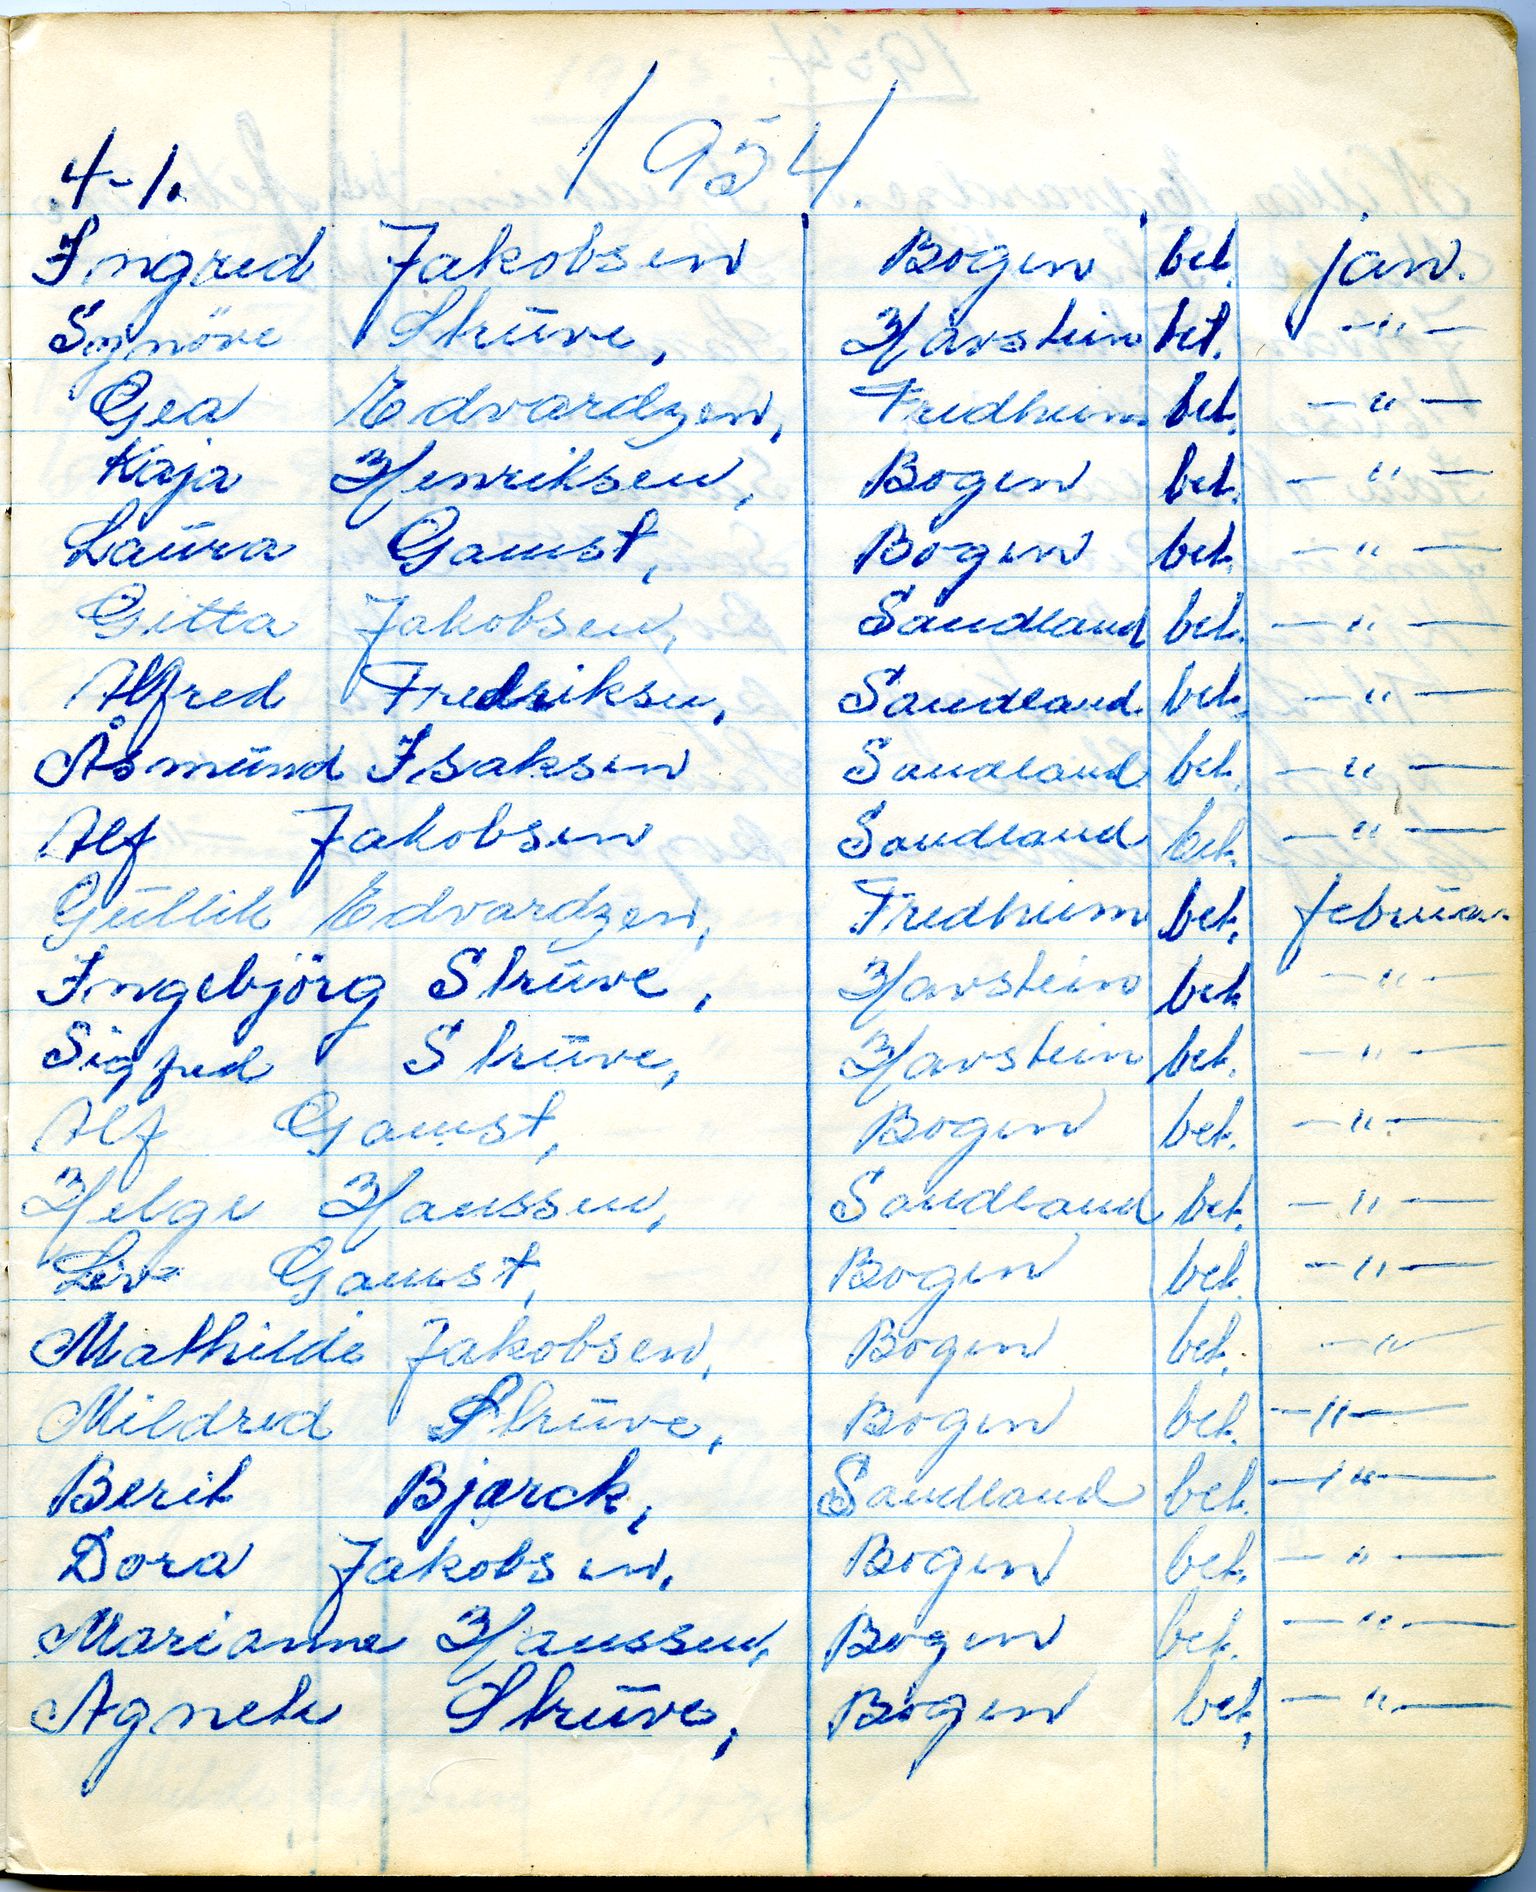 1954
4-1.
Ingred Jakobsen Bogen bet. jan.
Synöve Strüve, Harstein bet. -"-
Gea Edvardzen, Fredheim bet. -"-
Kaja Henriksen, Bogen bet. -"-
Laŭra Gamst, Bogen bet. -"-
Gitta Jakobsen, Sandland bet. -"-
Alfred Fredriksen, Sandland bet. -"-
Åsmŭnd Isaksen Sandland bet. -"-
Alf Jakobsen Sandland bet. -"-
Gŭllik Edvardzen, Fredheim bet. februar
Ingebjörg Strŭve, Harstein bet -"-
Sigfred Strŭve, Harstein bet. -"-
Alf Gamst, Bogen bet. -"-
Helge Hanssen, Sandland bet. -"-
Liv Gamst, Bogen bet. -"-
Mathilde Jakobsen, Bogen bet. -"
Mildred Strŭve, Bogen bet. -"-
Berit Bjørck, Sandland bet. -"-
Dora Jakobsen, Bogen bet. -"-
Marianne Hanssen, Bogen bet. -"-
Agnete Strŭve, Bogen bet. -"-